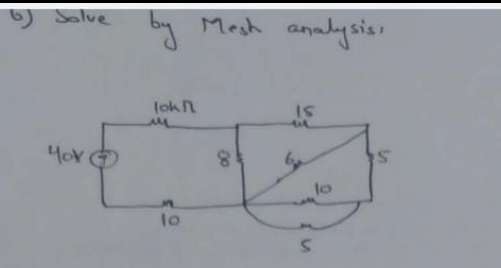 b) Solve by Mesh analysis,
10kΩ
15
40V
8
6
5
10
10
5